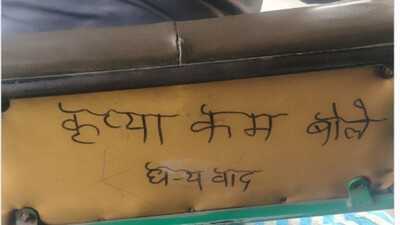 कृप्या कम बोले
धन्यवाद